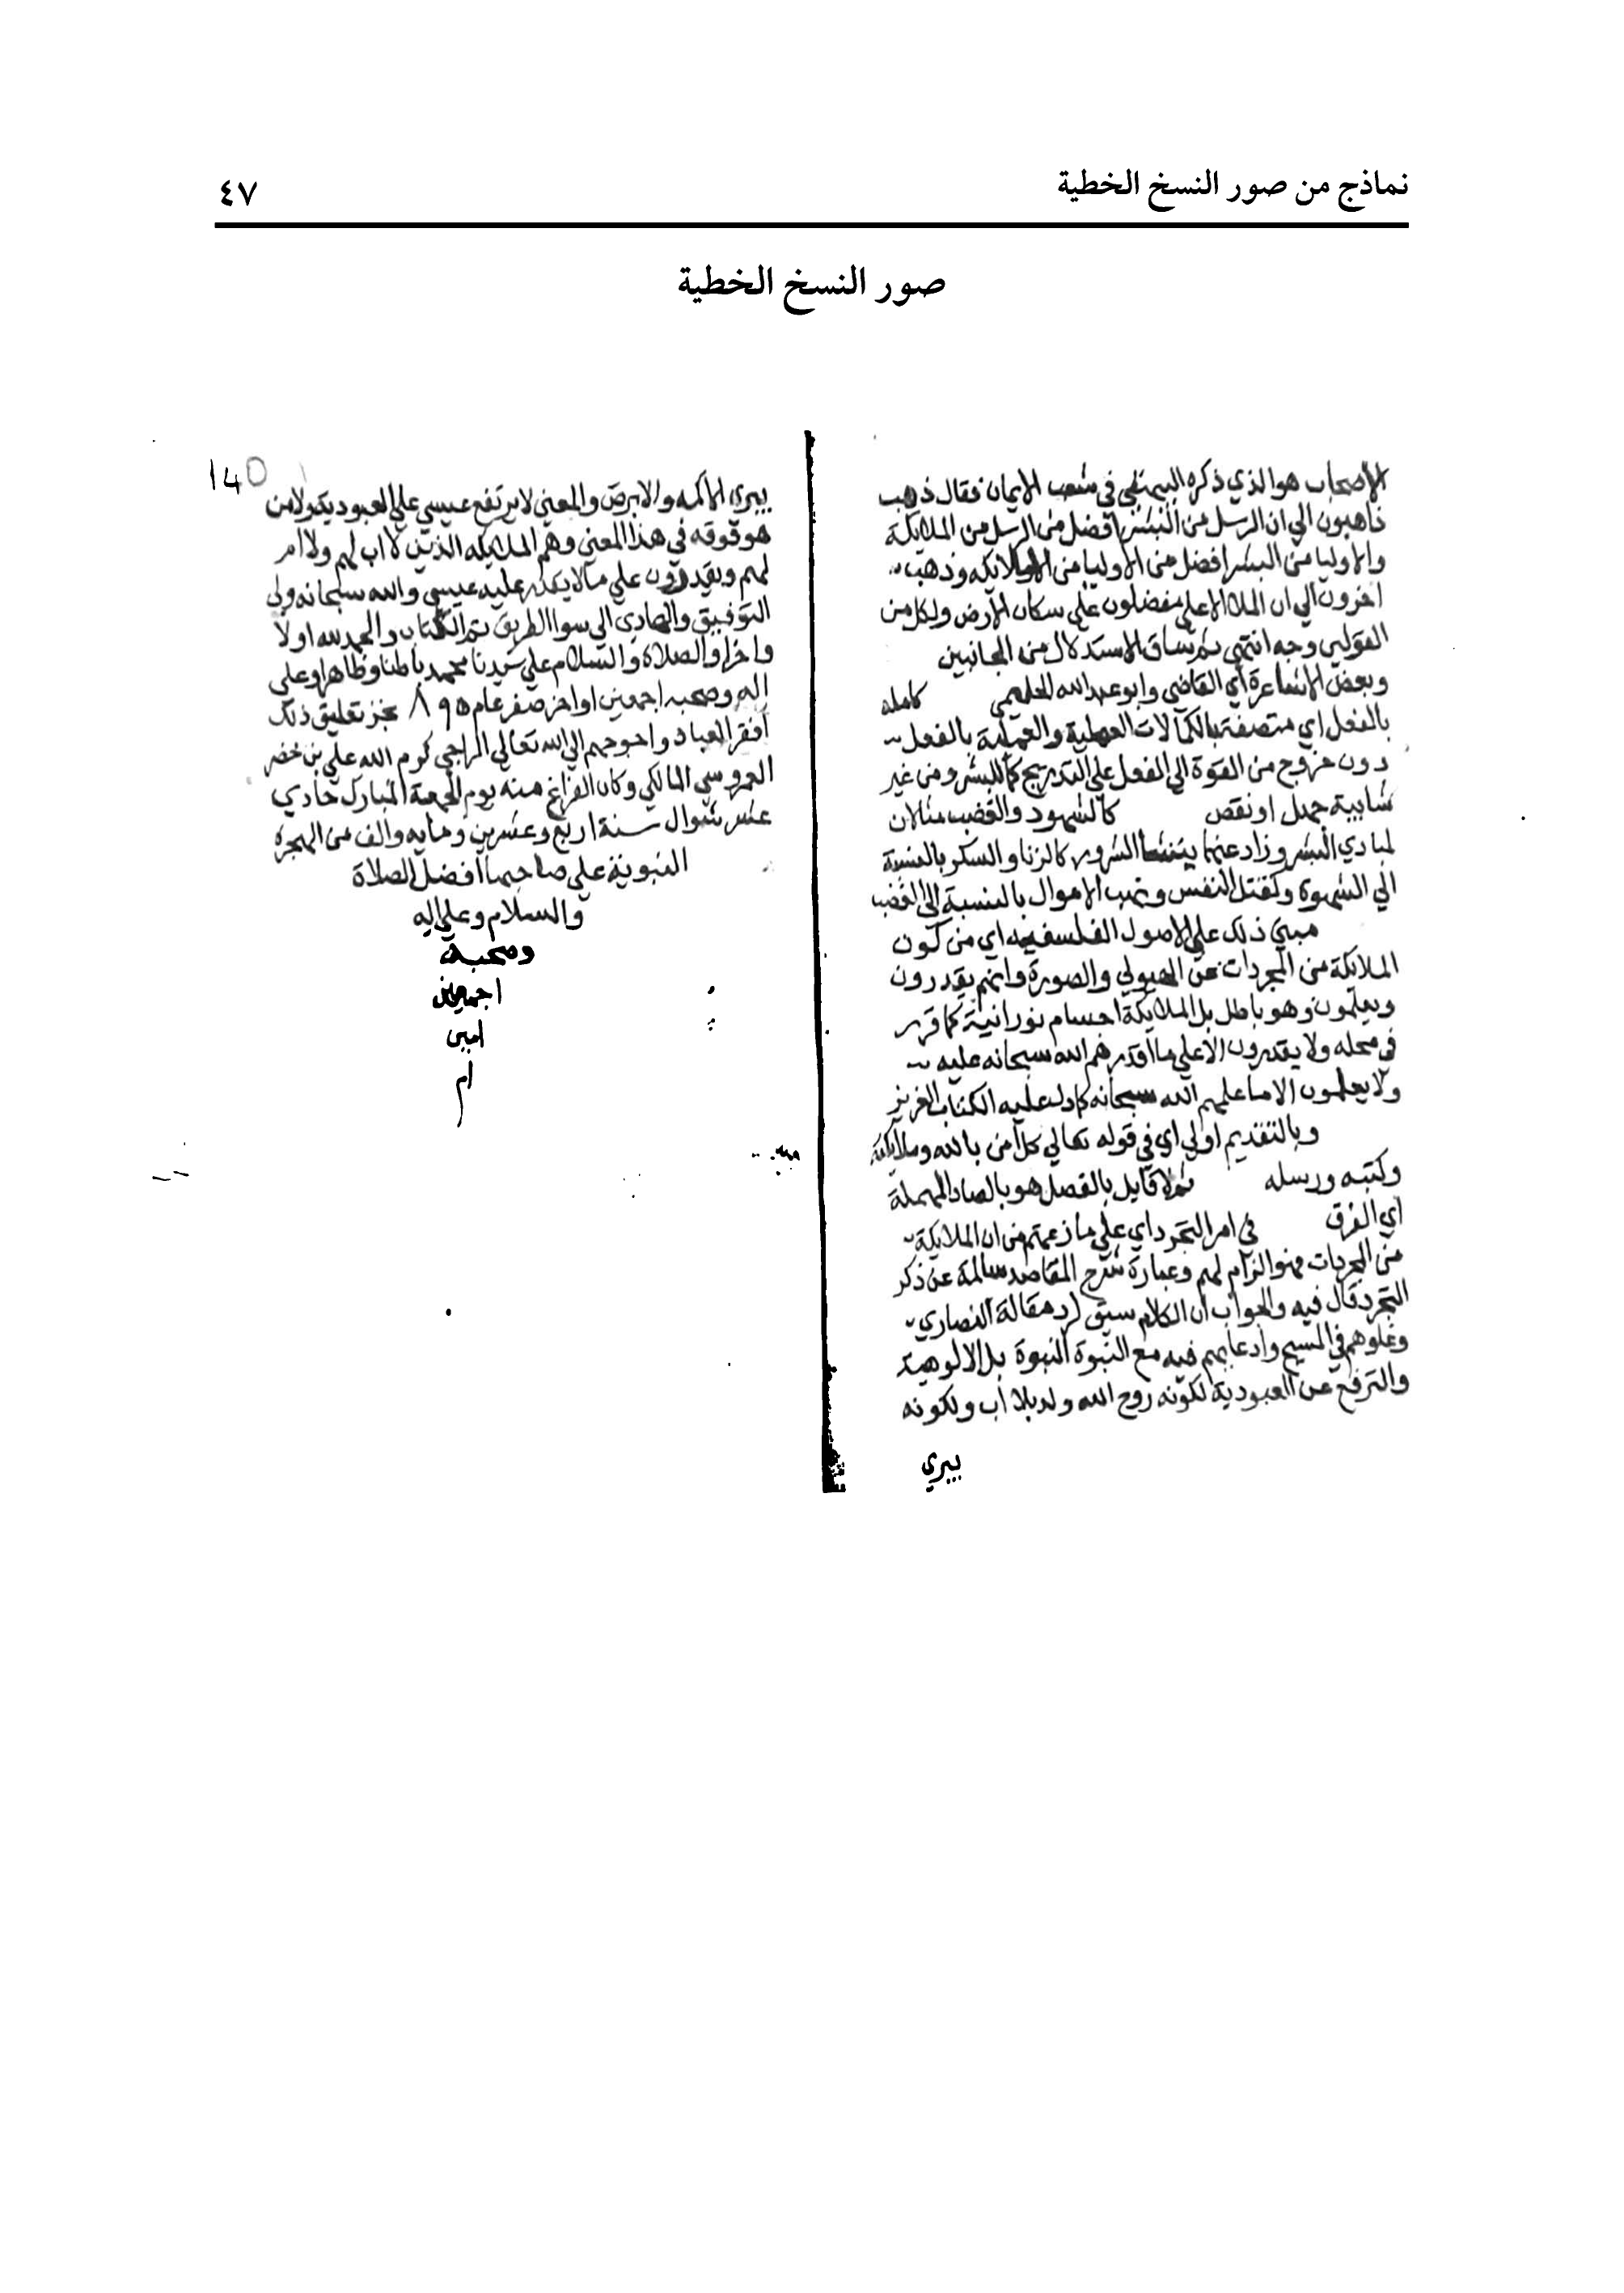 نماذج من صور النسخ الخطية
٤٧
صور النسخ الخطية
الأصحاب هو الذي ذكره البيهقي في شعب الايمان فقال ذهب
ذاهبون الي ان الرسل من البشر افضل من الرسل من الملايكة
والاوليا من البشر افضل من الاوليا من الملايكه وذهب
اخرون الي ان الملا الاعلي مفضلون علي سكان الأرض ولكل من
القولين وجه انتهي ثم ساق الاستدلال من الجانبين
وبعض الاشاعرة أي القاضي وابو عبد الله الحليمي كامله
بالفعل اي متصفة بالكمالات العملية والعملية بالفعل
دون خروج من القوة الي الفعل علي التدريج كما للبشر ومن غير
شايبة جهل او نقص كالشهوة والغضب مثالان
لمبادي الشرور زاد عنهما ينشا الشرور كالزنا والسكر بالنسبة
الي الشهوة وكقتل النفس ونهب الاموال بالنسبة الي الغضب
مبني ذلك علي الاصول الفلسفيه اي من كون
الملايكة من المجردات عن الهيولي والصورة وانهم يقدرون
ويعلمون وهو باطل بل الملايكة اجسام نورانية كما قرر
في محله ولا يقدرون الا علي ما اقدرهم الله سبحانه عليه
ولا يعلمون الا ما علمهم الله سبحانه كما دل عليه الكتاب العزيز
وبالتقديم اولي اي في قوله تعالي كل آمن بالله وملايكته
وكتبه ورسله ثم لا قايل بالفصل هو بالصاد المهملة
اي الفرق في امر التجرد اي علي ما زعمتم من ان الملايكة
من المجردات فهو الزام لهم وعبارة شرح المقاصد سالمة عن ذكر
التجرد قال فيه والجواب ان الكلام سيق لرد مقالة النصاري
وغلوهم في المسيح وادعايهم فيه مع النبوة البنوة بل الالوهية
والترفع عن العبودية لكونه روح الله ولد بلا أب ولكونه
يبري
140
يبري الاكمه والابرص والمعني لا يرتفع عيسي علي العبودية ولا من
هو فوقه في هذا المعني وهم الملايكه الذين لا اب لهم ولا ام
لهم ويقدرون علي ما لا يقدر عليه عيسي والله سبحانه ولي
التوفيق والهادي الي سوا الطريق تم الكتاب والحمد لله اولا
واخرا والصلاة والسلام علي سيدنا محمد باطنا وظاهرا وعلي
اله وصحبه اجمعين اواخر صفر عام ٨٩٥ نجز تعليق ذلك
أفقر العباد واحوجهم الي الله تعالي الراجي كرم الله علي بن خضر
العمروسي المالكي وكان الفراغ منه يوم الجمعة المبارك حادي
عشر شوال سنة اربع وعشرين ومايه والف من الهجرة
النبوية علي صاحبها افضل الصلاة
والسلام وعلي اله
وصحبه
اجمعين
امين
ام